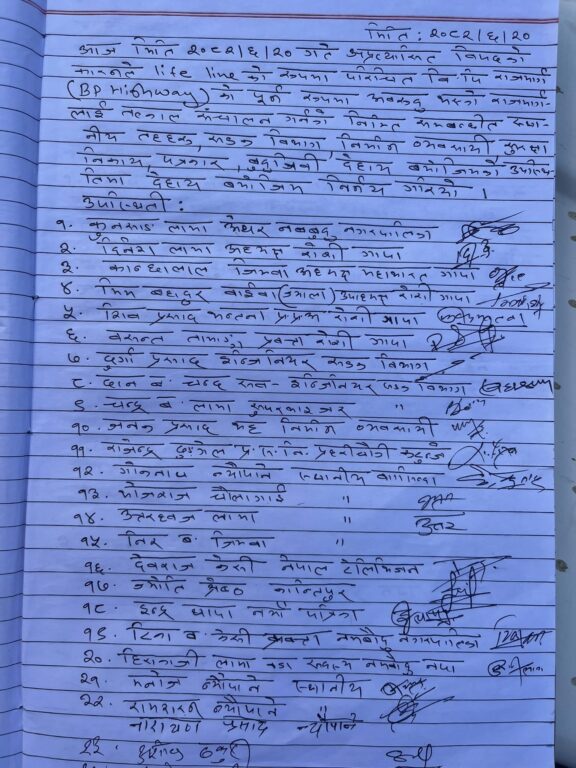 मिति : २०८२/६/२०
आज मिति २०८२/६/२० गते अप्रत्यासित विपदको
कारणले life line को रूपमा परिचित वि.पि राजमार्ग
(BP Highway) को पूर्ण रूपमा अवरूद्ध भएको राजमार्ग-
लाई तत्काल संचालन गर्नको निमित्त सम्बन्धीत स्था-
नीय तहहरू, सडक विभाग, निर्माण व्यवसायी, सुरक्षा
निकाय, पत्रकार, बुद्धिजिवी देहाय बमोजिमको उपस्थि-
तिमा देहाय बमोजिम निर्णय गरियो ।
उपस्थिती :
१. कुनसाङ लामा मेयर नमोबुद्ध नगरपालिका
२. दिनेश लामा अध्यक्ष रोशी गापा
३. कान्छालाल जिम्बा अध्यक्ष महाभारत गापा
४. भिम बहादुर वाईबा उपाध्यक्ष रोशी गापा
५. शिव प्रसाद प्रप्रअ रोशी गापा
६. वसन्त तामाङ, प्रवक्ता रोशी गापा
७. दुर्गा प्रसाद ईन्जिनियर सडक विभाग
८. दान ब. चन्द सव- ईन्जिनियर सडक विभाग
९. चन्द्र ब. लामा सुपरभाइजर "
१०. जनक प्रसाद भट्ट निर्माण व्यवसायी
११. राजेन्द्र ढुङ्गेल प्र.स.नि. प्रहरीचौकी
१२. गोरनाथ न्यौपाने स्थानीय
१३. भोजराज चौलागाई "
१४. उत्तरध्वज लामा " उत्तर
१५. विर ब. जिम्बा "
१६. देवराज केसी नेपाल टेलिभिजन
१७. ज्योति श्रेष्ठ कान्तिपुर
१८. इन्द्र थापा नयाँ पत्रिका
१९. टिका ब. केसी प्रवक्ता नमोबुद्ध नगरपालिका
२०. हिराकाजी लामा वडा सदस्य नमोबुद्ध नपा
२१. मनोज न्यौपाने स्थानीय
२२. रामशरण न्यौपाने "
नारायण प्रसाद न्यौपाने
२३.